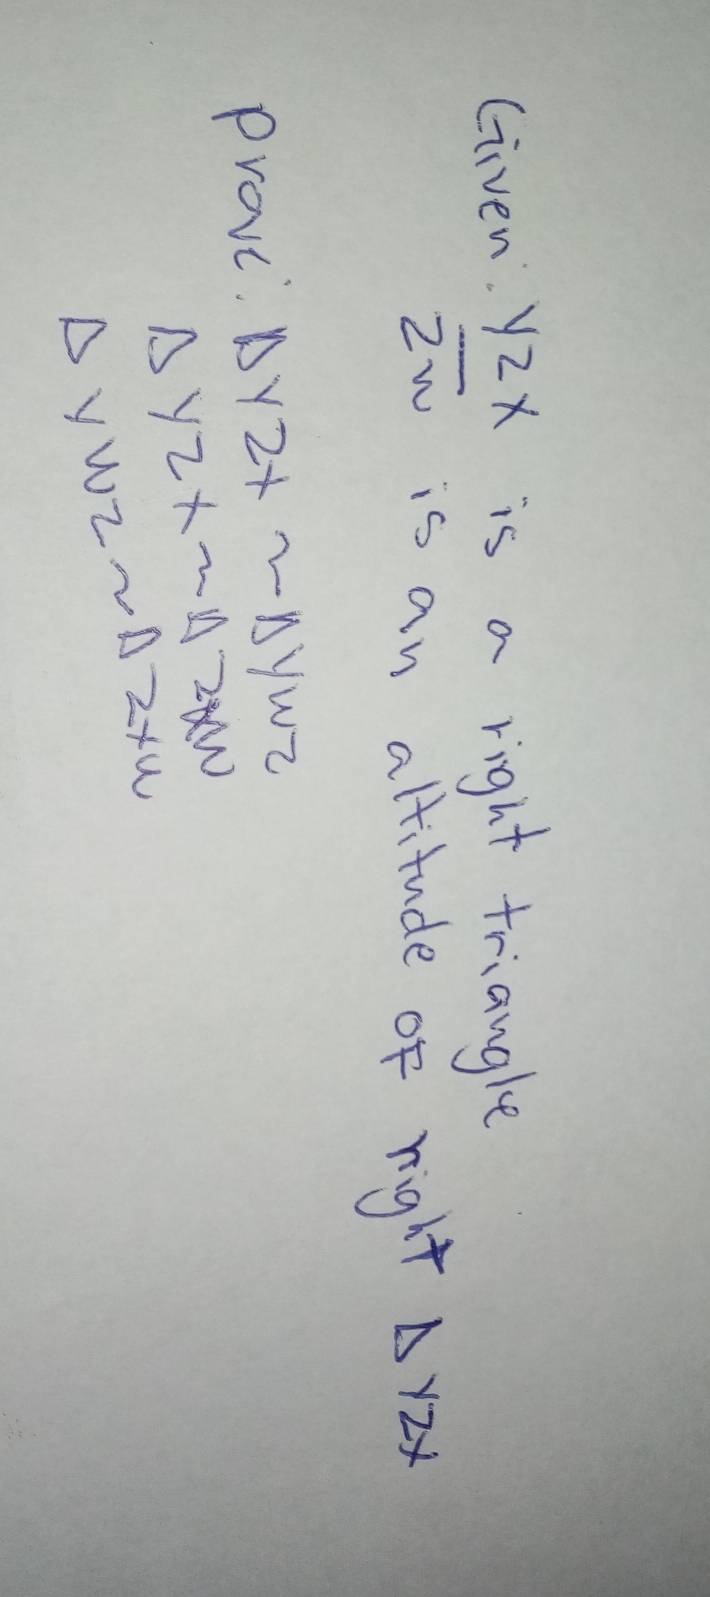 Given: YZX is a right triangle
ZW is an altitude of right Δ YZX
Prove: Δ YZX ~ Δ YWZ
Δ YZX ~ Δ ZXW
Δ YWZ ~ Δ ZXW